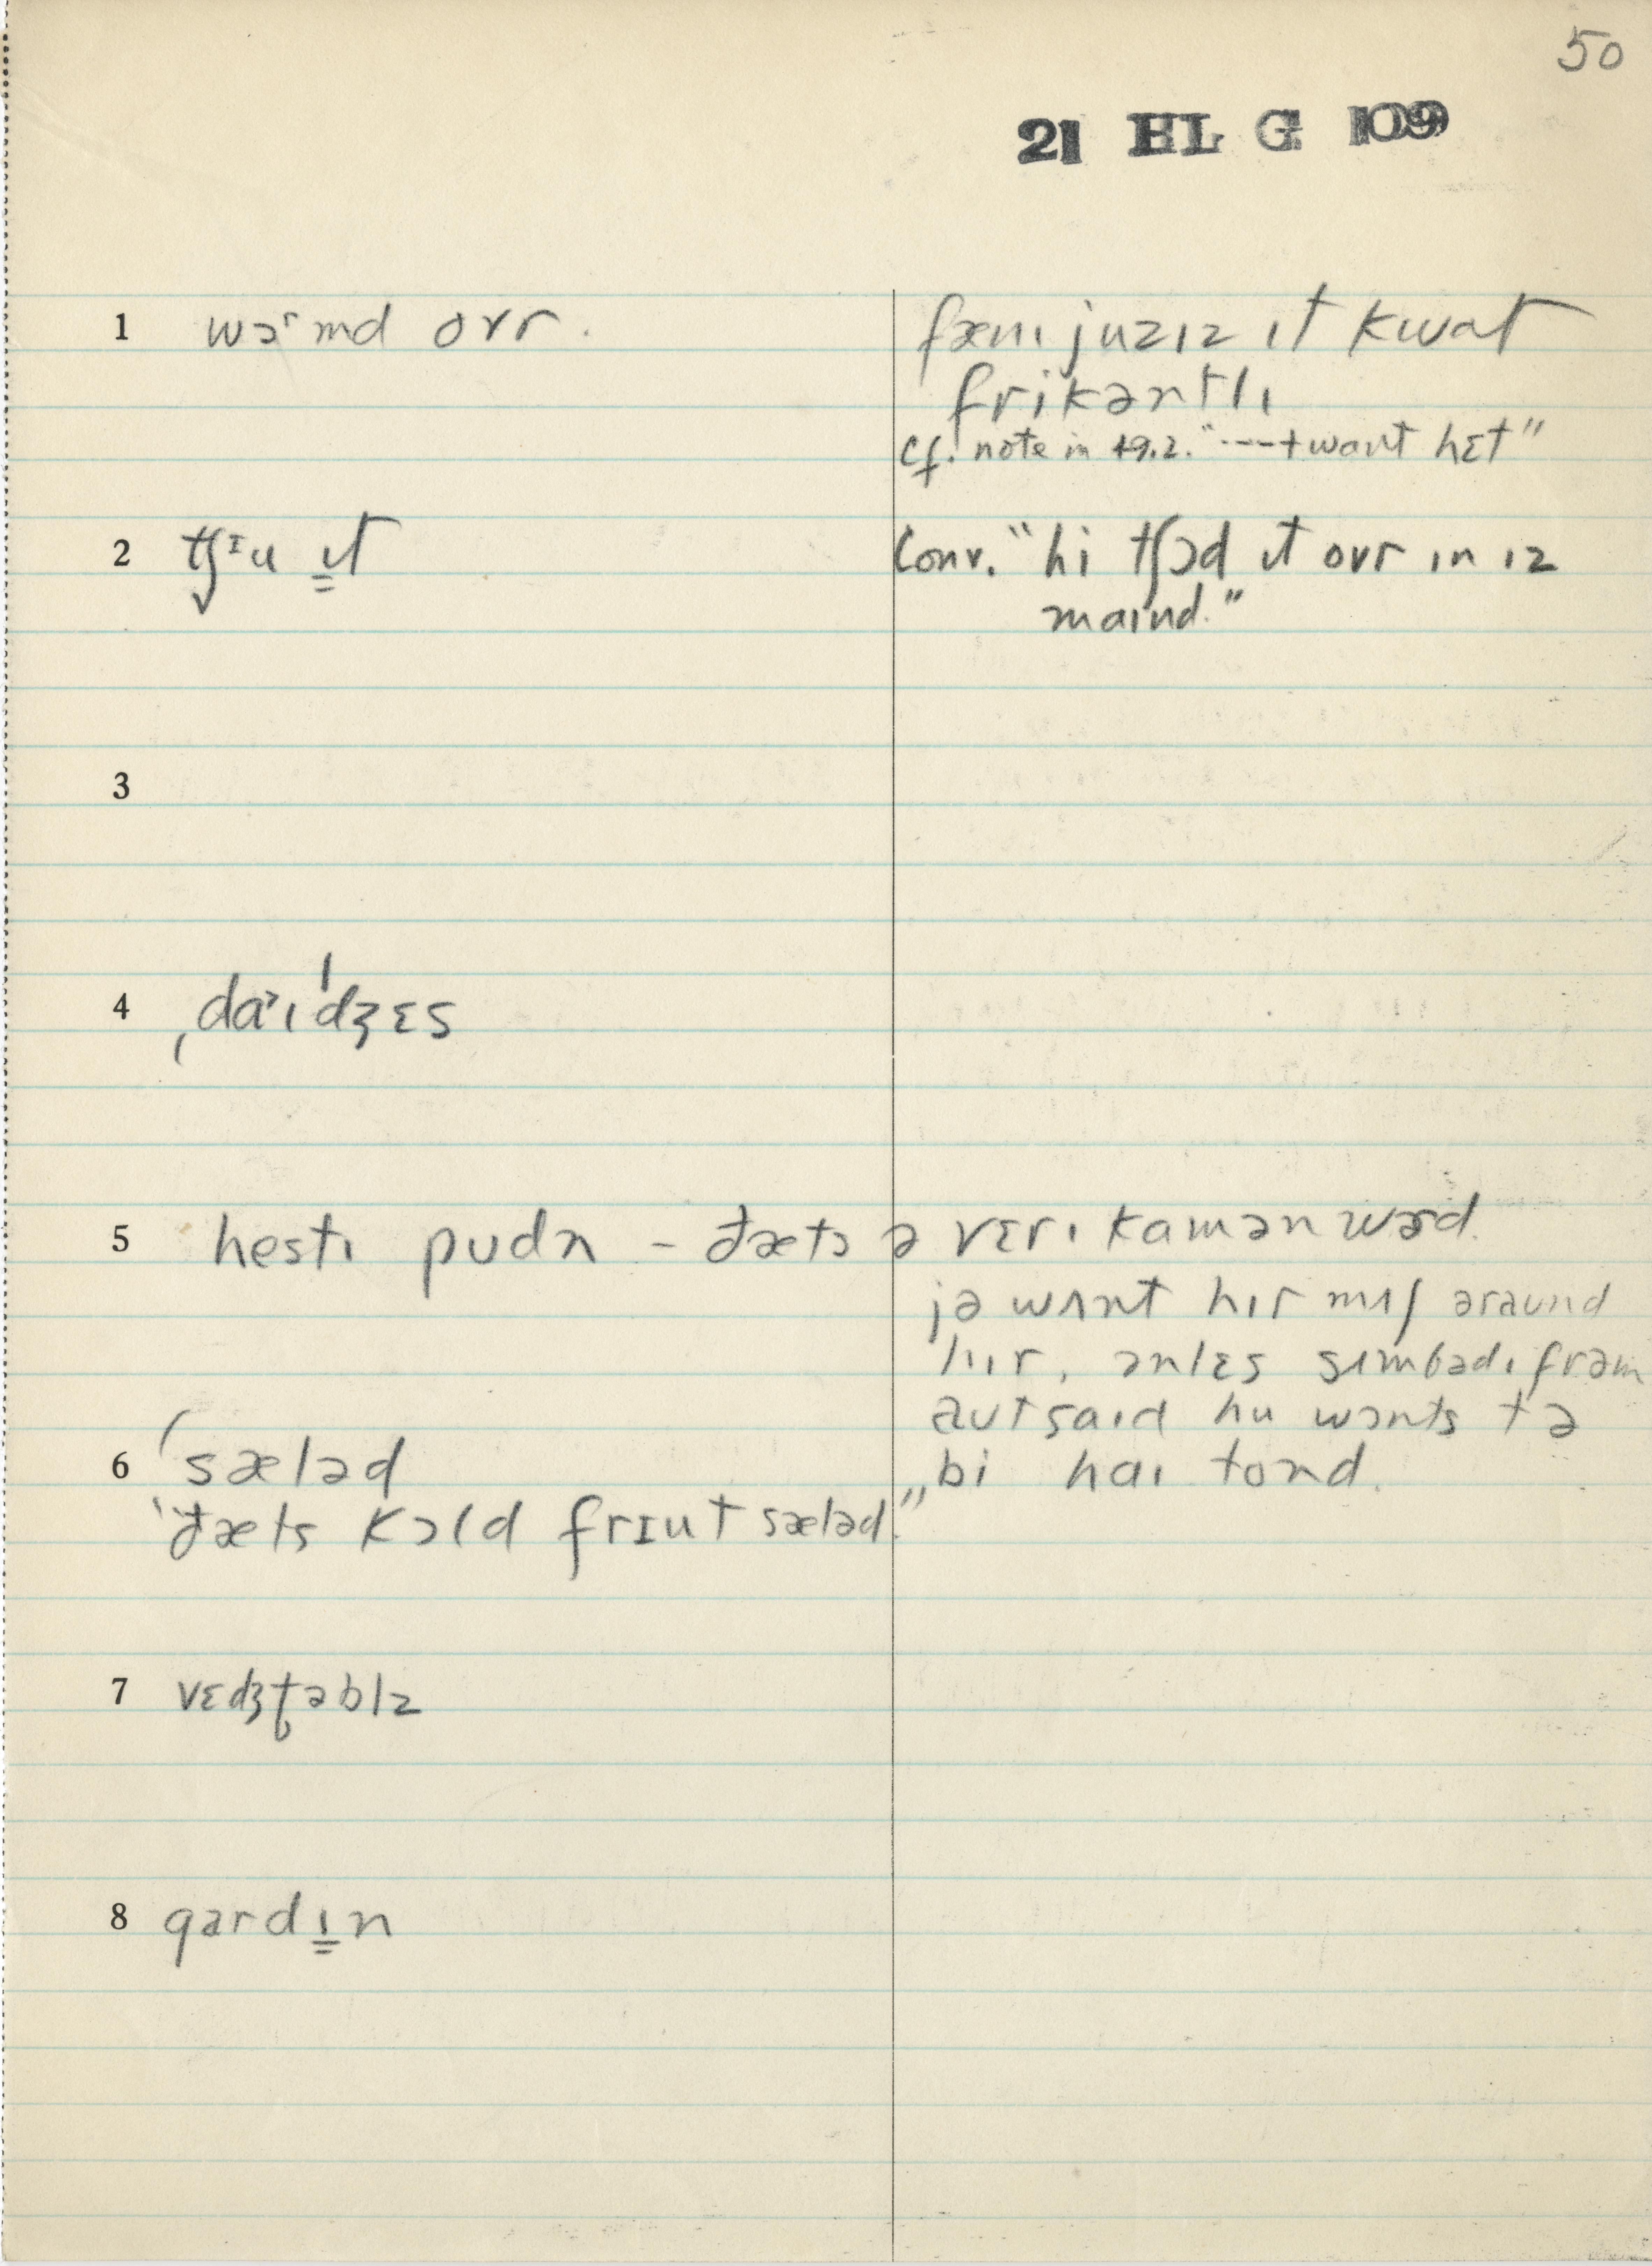 50
21 HL G 109
1 wɔʳmd ovr.
fæni juzɪz ɪt kwat
frikəntlɪ
cf. note in 49.2. "----t want hɛt"
2 tʃᶦu ɪt
Conv. "hi tʃɔd ɪt ovr ɪn ɪz
maɪnd."
3
4 ˌdaᵊɪˈdʒɛs
5 hestɪ pudn – ðæts ə vɛrɪ kamən wərd.
jə wʌnt hɪr mʌʃ əraund
hɪr, ənlɛs sʌmbədɪ frəm
autsaɪd hu wɔnts tə
bi haɪ tond.
6 ˈsæləd
"ðæts kɔld frɪut sæləd."
7 vɛdʒtəblz
8 gardɪn